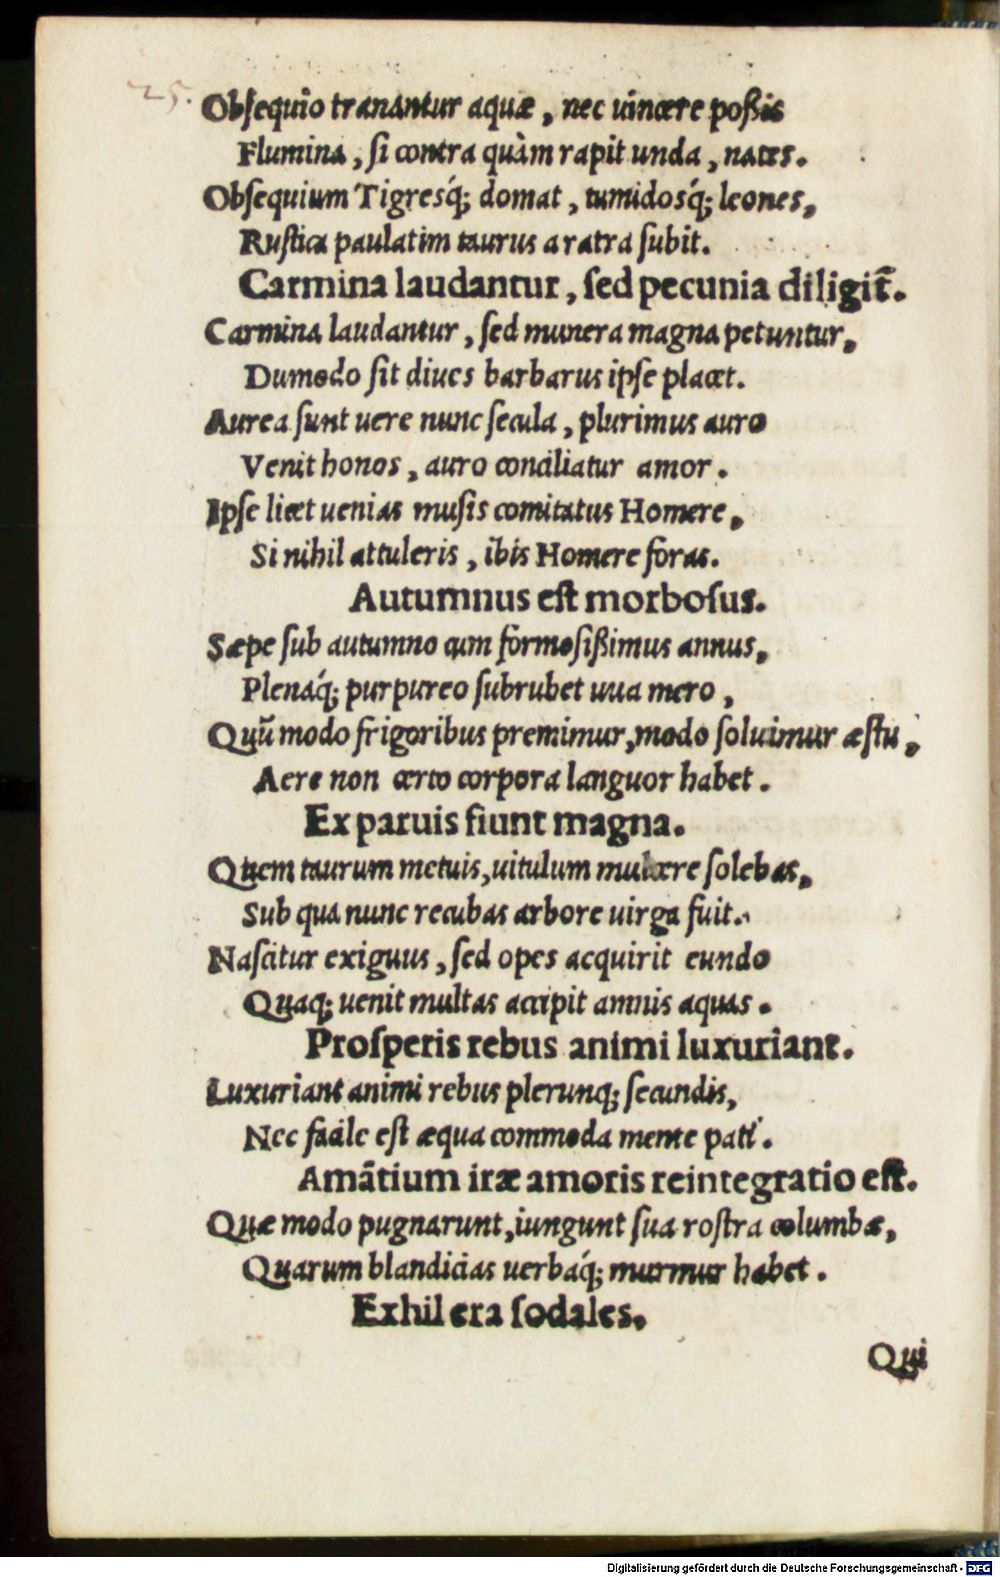 25.
Obsequio tranantur aquæ, nec uincere poßis
Flumina, si contra quàm rapit unda, nates.
Obsequium Tigresq́; domat, tumidosq́; leones,
Rustica paulatim taurus aratra subit.
Carmina laudantur, sed pecunia diligit̃.
Carmina laudantur, sed munera magna petuntur,
Dummodo sit diues barbarus ipse placet.
Aurea sunt uere nunc secula, plurimus auro
Venit honos, auro conciliatur amor.
Ipse licet uenias musis comitatus Homere,
Si nihil attuleris, ibis Homere foras.
Autumnus est morbosus.
Sæpe sub autumno cum formosißimus annus,
Plenaq́; purpureo subrubet uua mero,
Quũ modo frigoribus premimur, modo soluimur æstu,
Aere non certo corpora languor habet.
Ex paruis fiunt magna.
Quem taurum metuis, uitulum mulcere solebas,
Sub qua nunc recubas arbore uirga fuit.
Nascitur exiguus, sed opes acquirit eundo
Quaq; uenit multas accipit amnis aquas.
Prosperis rebus animi luxuriant.
Luxuriant animi rebus plerunq; secundis,
Nec facile est æqua commoda mente pati.
Amãtium iræ amoris reintegratio est.
Quæ modo pugnarunt, iungunt sua rostra columbæ,
Quarum blandicias uerbaq́; murmur habet.
Exhilera sodales.
Qui
Digitalisierung gefördert durch die Deutsche Forschungsgemeinschaft - DFG